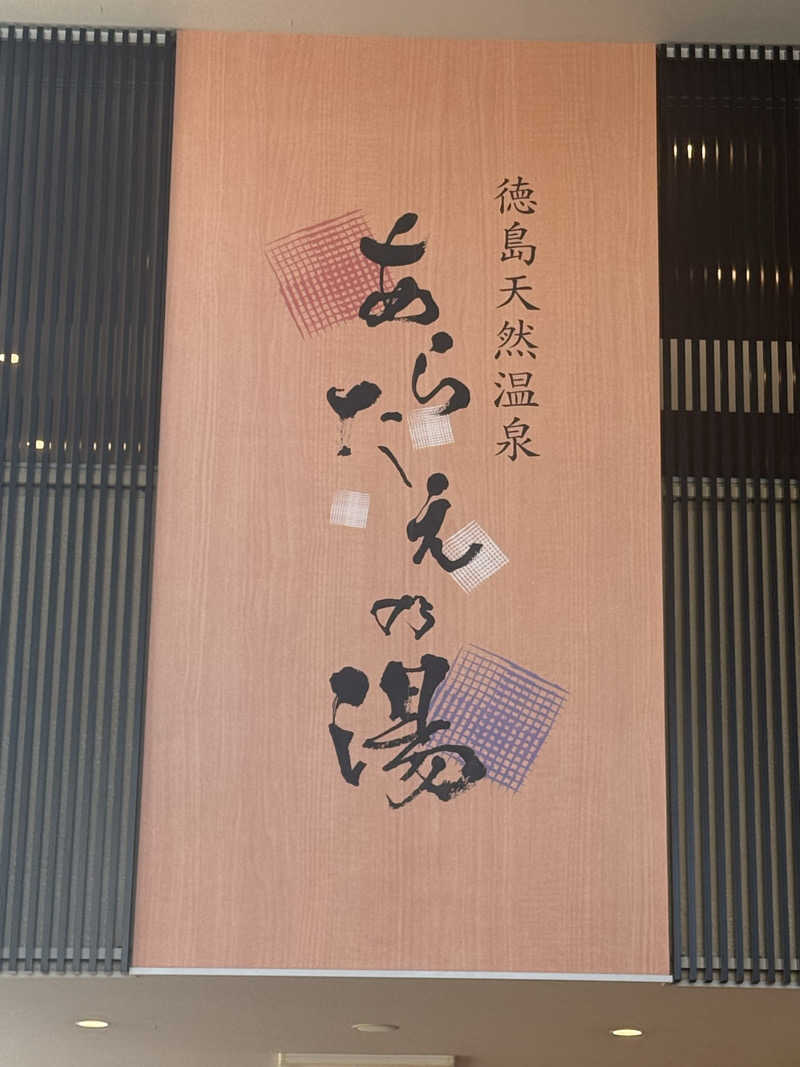 徳島天然温泉
あらたえの湯